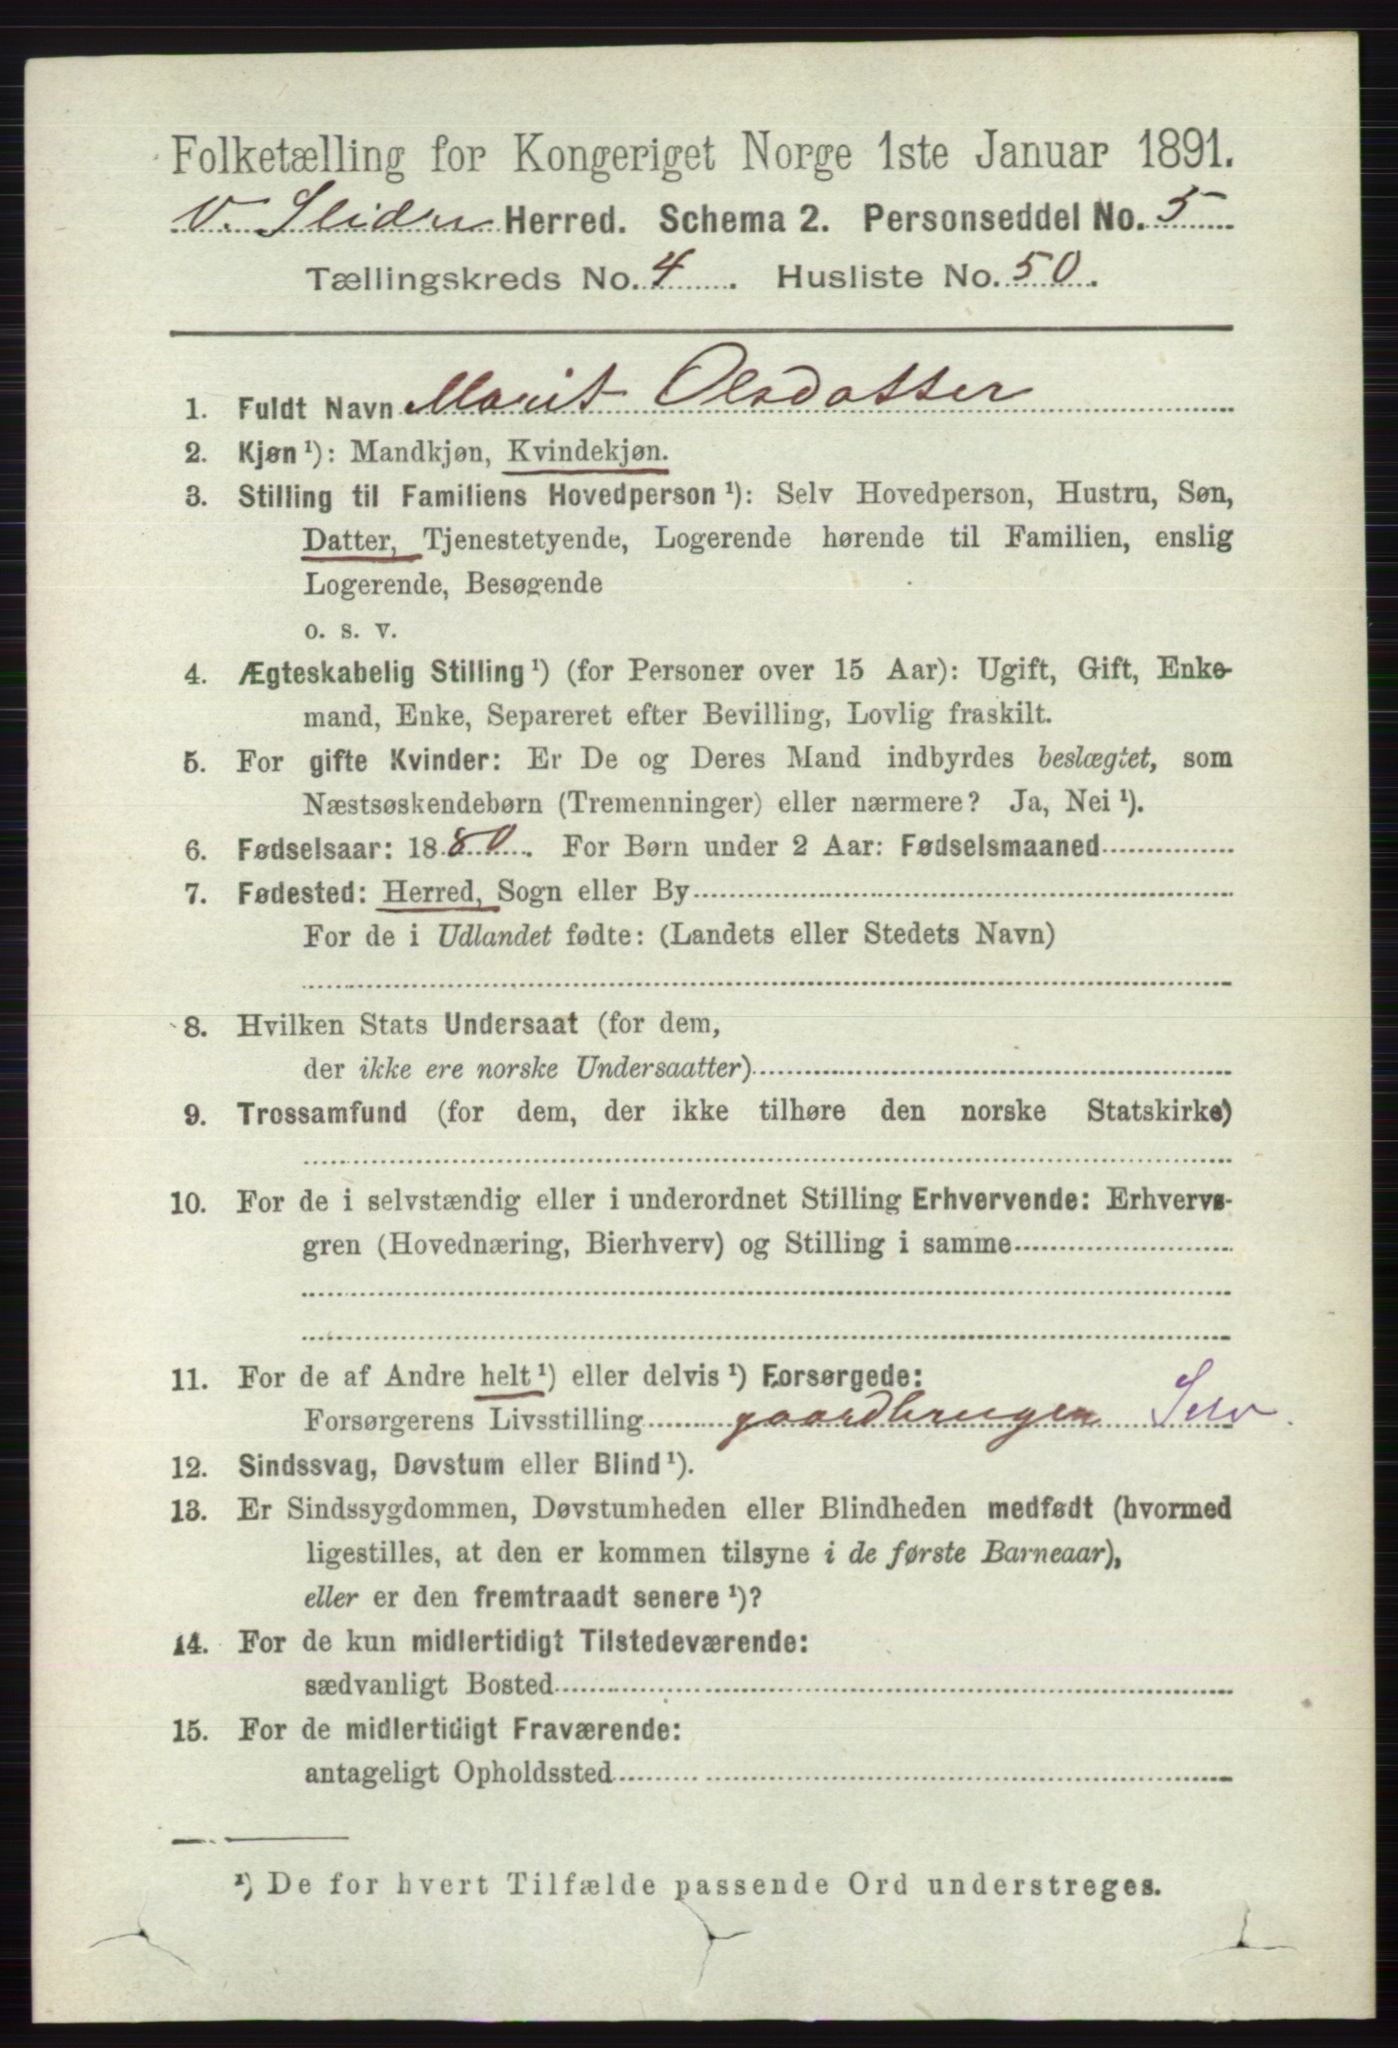 Folketælling for Kongeriget Norge 1ste Januar 1891.
V. Slidre Herred. Schema 2. Personseddel No. 5
Tællingskreds No. 4. Husliste No. 50.
1. Fuldt Navn Marit Olsdatter
2. Kjøn ¹): Mandkjøn, Kvindekjøn.
3. Stilling til Familiens Hovedperson ¹): Selv Hovedperson, Hustru, Søn,
Datter, Tjenestetyende, Logerende hørende til Familien, enslig
Logerende, Besøgende
o. s. v.
4. Ægteskabelig Stilling ¹) (for Personer over 15 Aar): Ugift, Gift, Enke-
mand, Enke, Separeret efter Bevilling, Lovlig fraskilt.
5. For gifte Kvinder: Er De og Deres Mand indbyrdes beslægtet, som
Næstsøskendebørn (Tremenninger) eller nærmere? Ja, Nei ¹).
6. Fødselsaar: 1880. For Børn under 2 Aar: Fødselsmaaned
7. Fødested: Herred, Sogn eller By
For de i Udlandet fødte: (Landets eller Stedets Navn)
8. Hvilken Stats Undersaat (for dem,
der ikke ere norske Undersaatter)
9. Trossamfund (for dem, der ikke tilhøre den norske Statskirke)
10. For de i selvstændig eller i underordnet Stilling Erhvervende: Erhvervs-
gren (Hovednæring, Bierhverv) og Stilling i samme
11. For de af Andre helt ¹) eller delvis ¹) Forsørgede:
Forsørgerens Livsstilling gaardbrugen Selv.
12. Sindssvag, Døvstum eller Blind ¹).
13. Er Sindssygdommen, Døvstumheden eller Blindheden medfødt (hvormed
ligestilles, at den er kommen tilsyne i de første Barneaar),
eller er den fremtraadt senere ¹)?
14. For de kun midlertidigt Tilstedeværende:
sædvanligt Bosted
15. For de midlertidigt Fraværende:
antageligt Opholdssted
¹) De for hvert Tilfælde passende Ord understreges.